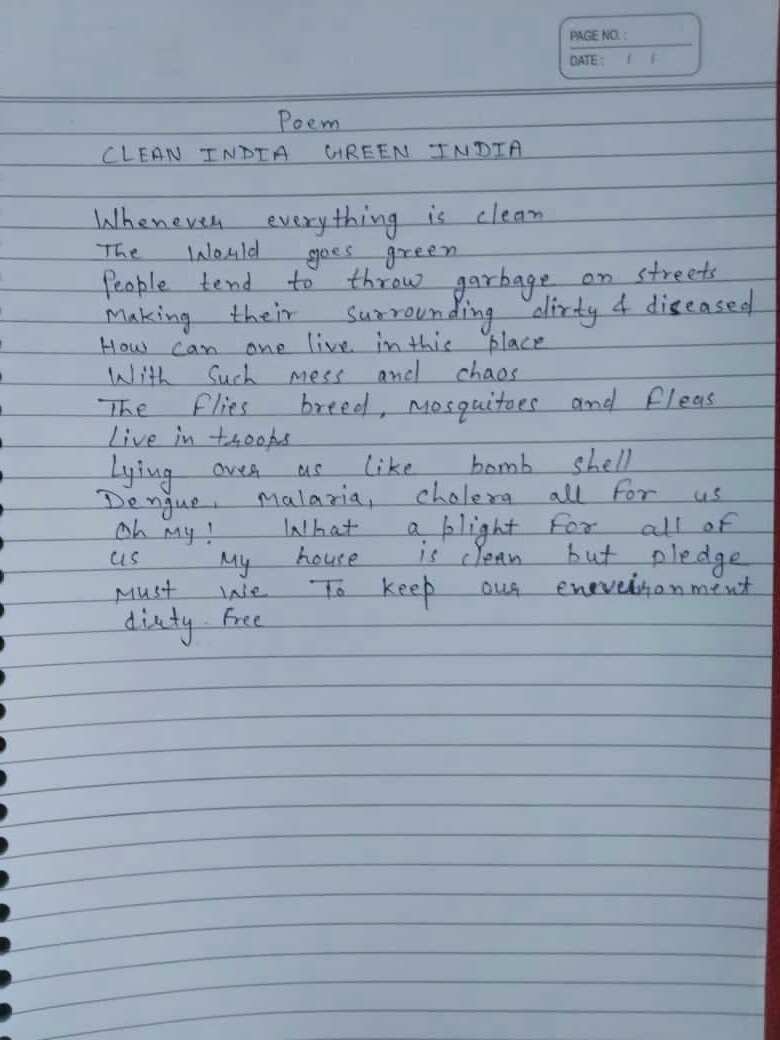 PAGE NO. :
DATE : / /
Poem
CLEAN INDIA GREEN INDIA
Whenever everything is clean
The World goes green
People tend to throw garbage on streets
Making their surrounding dirty & diseased
How can one live in this place
With Such mess and chaos
The flies breed, Mosquitoes and fleas
Live in troops
Lying over us like bomb shell
Dengue, Malaria, Cholera all for us
Oh My! What a blight for all of
us My house is clean but pledge
Must We To keep our eneveironment
dirty free